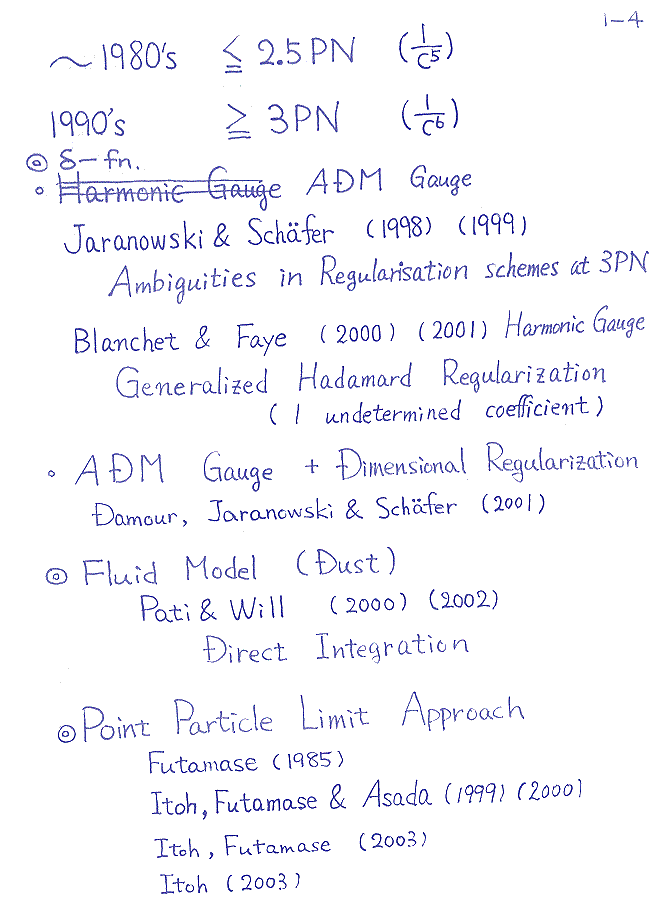 1-4
~1980's ≦ 2.5PN (1/c⁵)
1990's ≧ 3PN (1/c⁶)
◎ δ-fn.
∘ Harmonic Gauge ADM Gauge
Jaranowski & Schäfer (1998) (1999)
Ambiguities in Regularisation schemes at 3PN
Blanchet & Faye (2000) (2001) Harmonic Gauge
Generalized Hadamard Regularization
(1 undetermined coefficient)
∘ ADM Gauge + Dimensional Regularization
Damour, Jaranowski & Schäfer (2001)
◎ Fluid Model (Dust)
Pati & Will (2000) (2002)
Direct Integration
◎ Point Particle Limit Approach
Futamase (1985)
Itoh, Futamase & Asada (1999) (2000)
Itoh, Futamase (2003)
Itoh (2003)